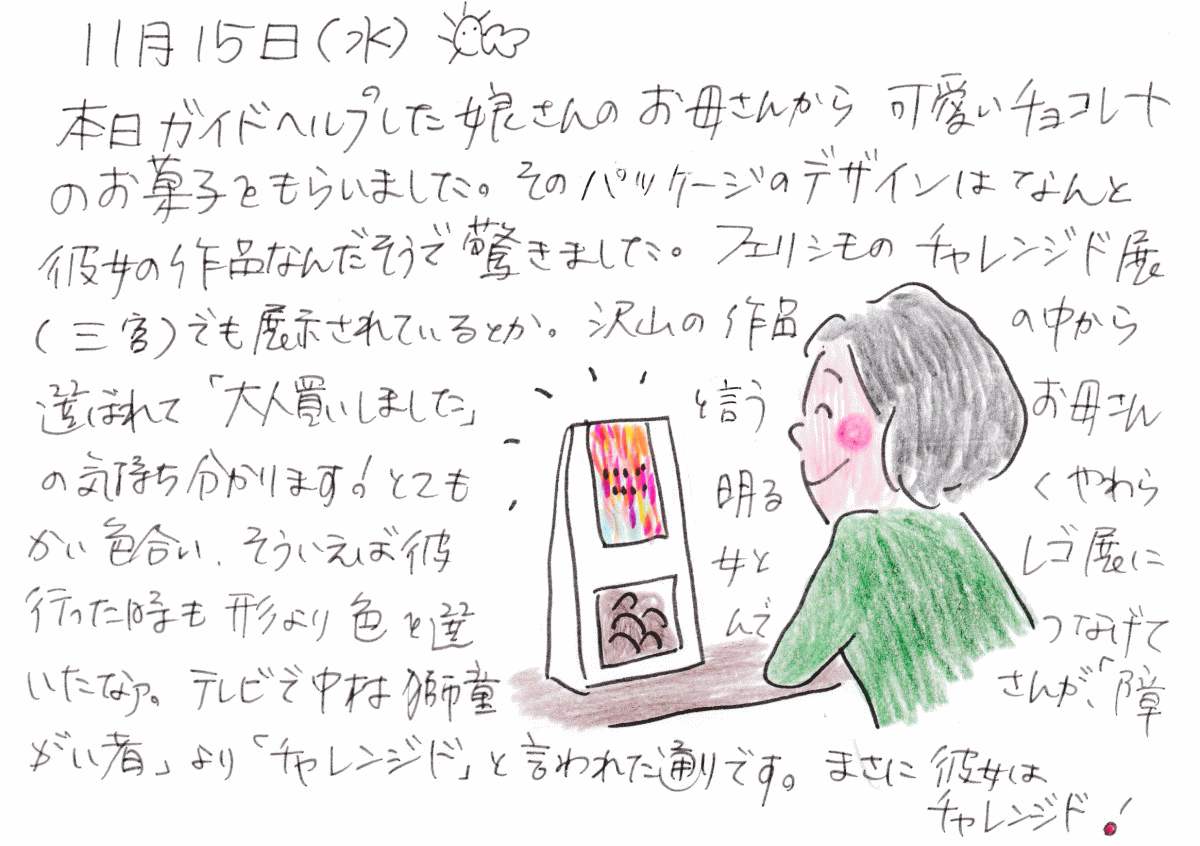 11月15日(水)
本日ガイドヘルプした娘さんのお母さんから 可愛いチョコレート
のお菓子をもらいました。そのパッケージのデザインはなんと
彼女の作品なんだそうで驚きました。フェリシモのチャレンジド展
(三宮)でも展示されているとか。沢山の作品の中から
選ばれて「大人買いしました」と言うお母さん
の気持ち分かります!とても明るくやわら
かい色合い、そういえば彼女とレゴ展に
行った時も形より色を選んでつなげて
いたなァ。テレビで中村獅童さんが、「障
がい者」より「チャレンジド」と言われた通りです。まさに彼女は
チャレンジド!